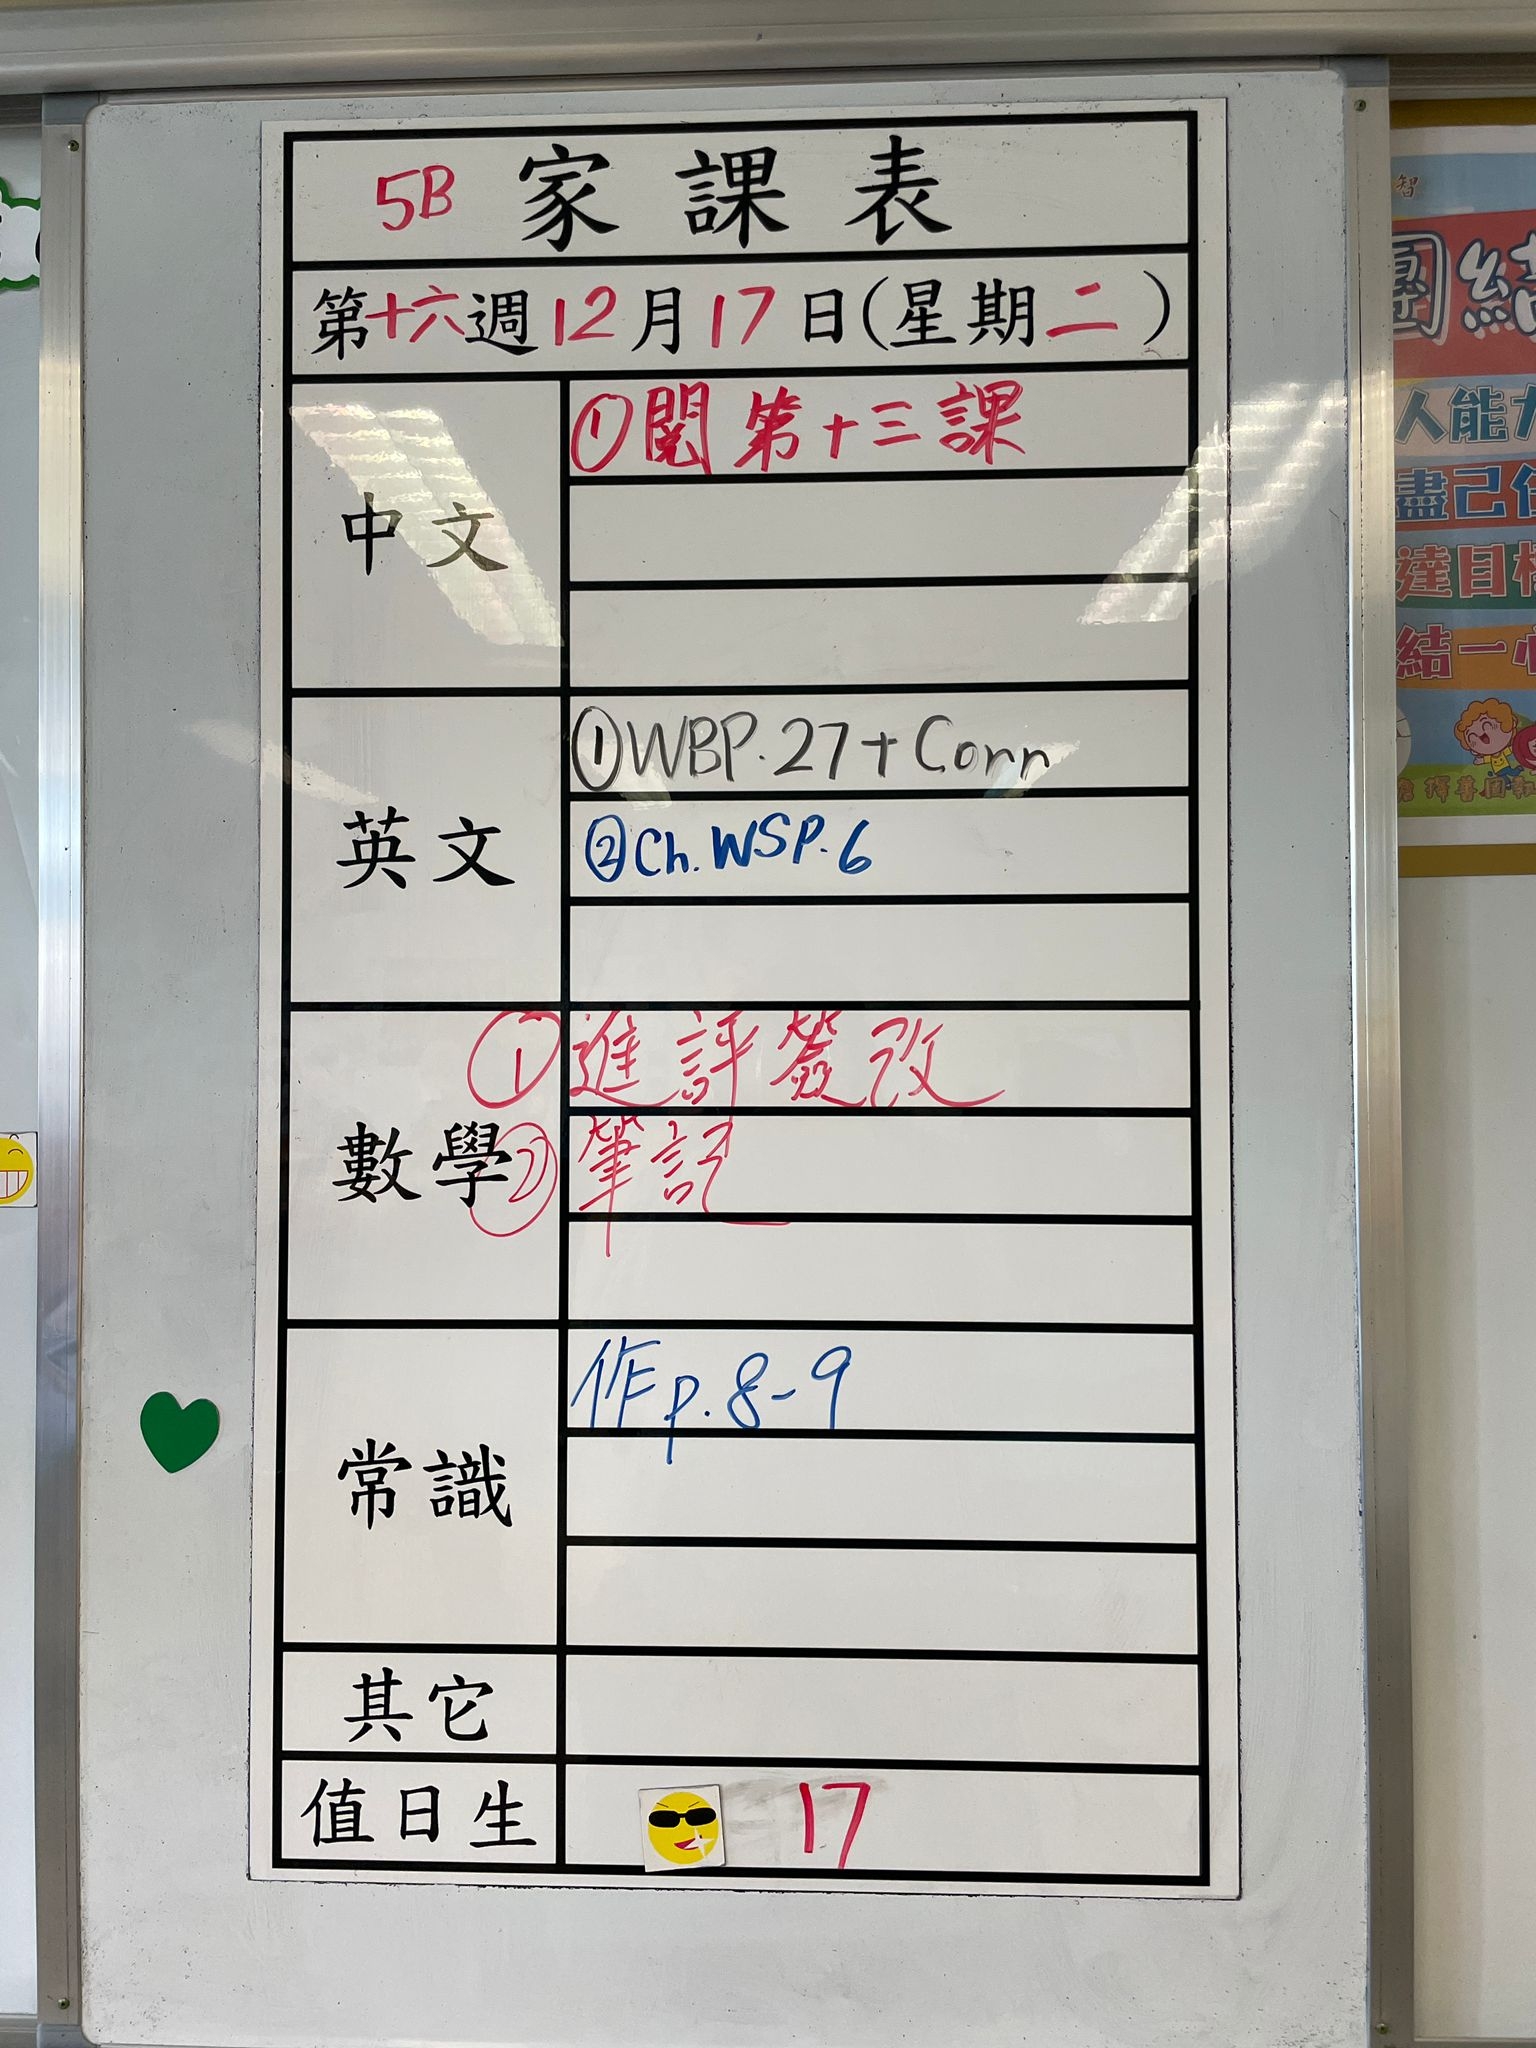 5B 家課表
第十六週12月17日(星期二)
中文
①閱第十三課
英文
①WBP.27+Corr
②Ch.WSP.6
數學
①進評簽改
②筆記
常識
作p.8-9
其它
值日生
17
智
團結
人能
盡己
達目標
結一心